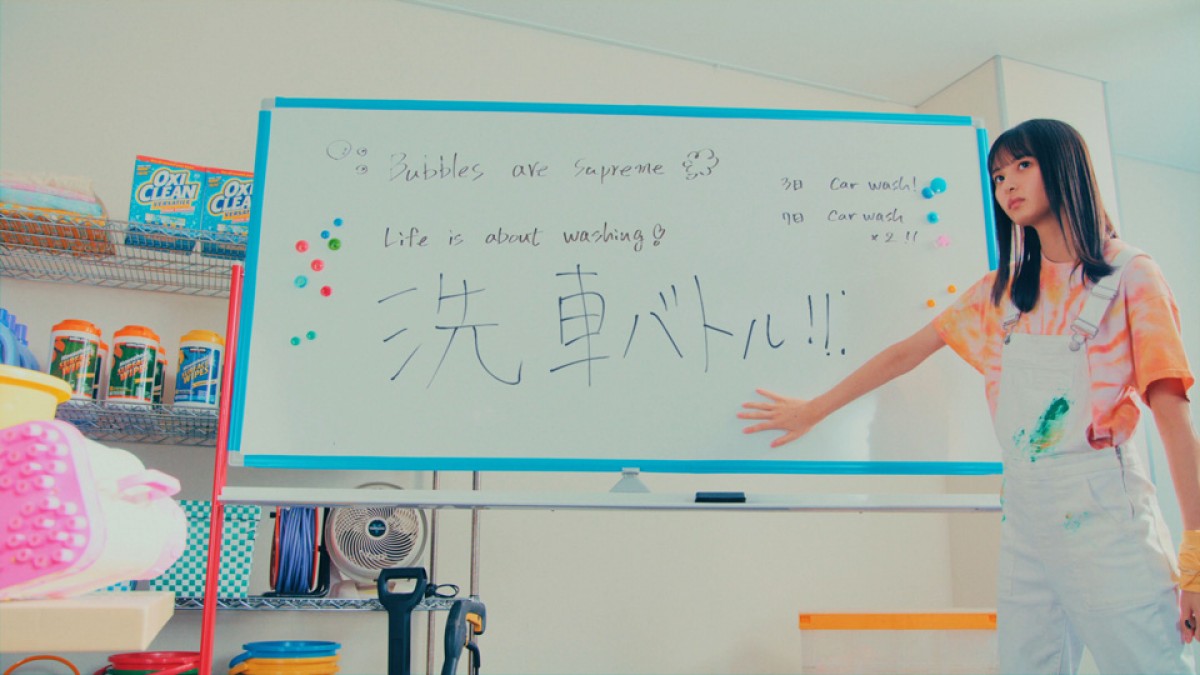 Bubbles are supreme
3日 Car wash!
7日 Car wash
×2!!
Life is about washing!
洗車バトル!!
OXI
CLEAN
VERSATILE
OXI
CLEAN
WIPES